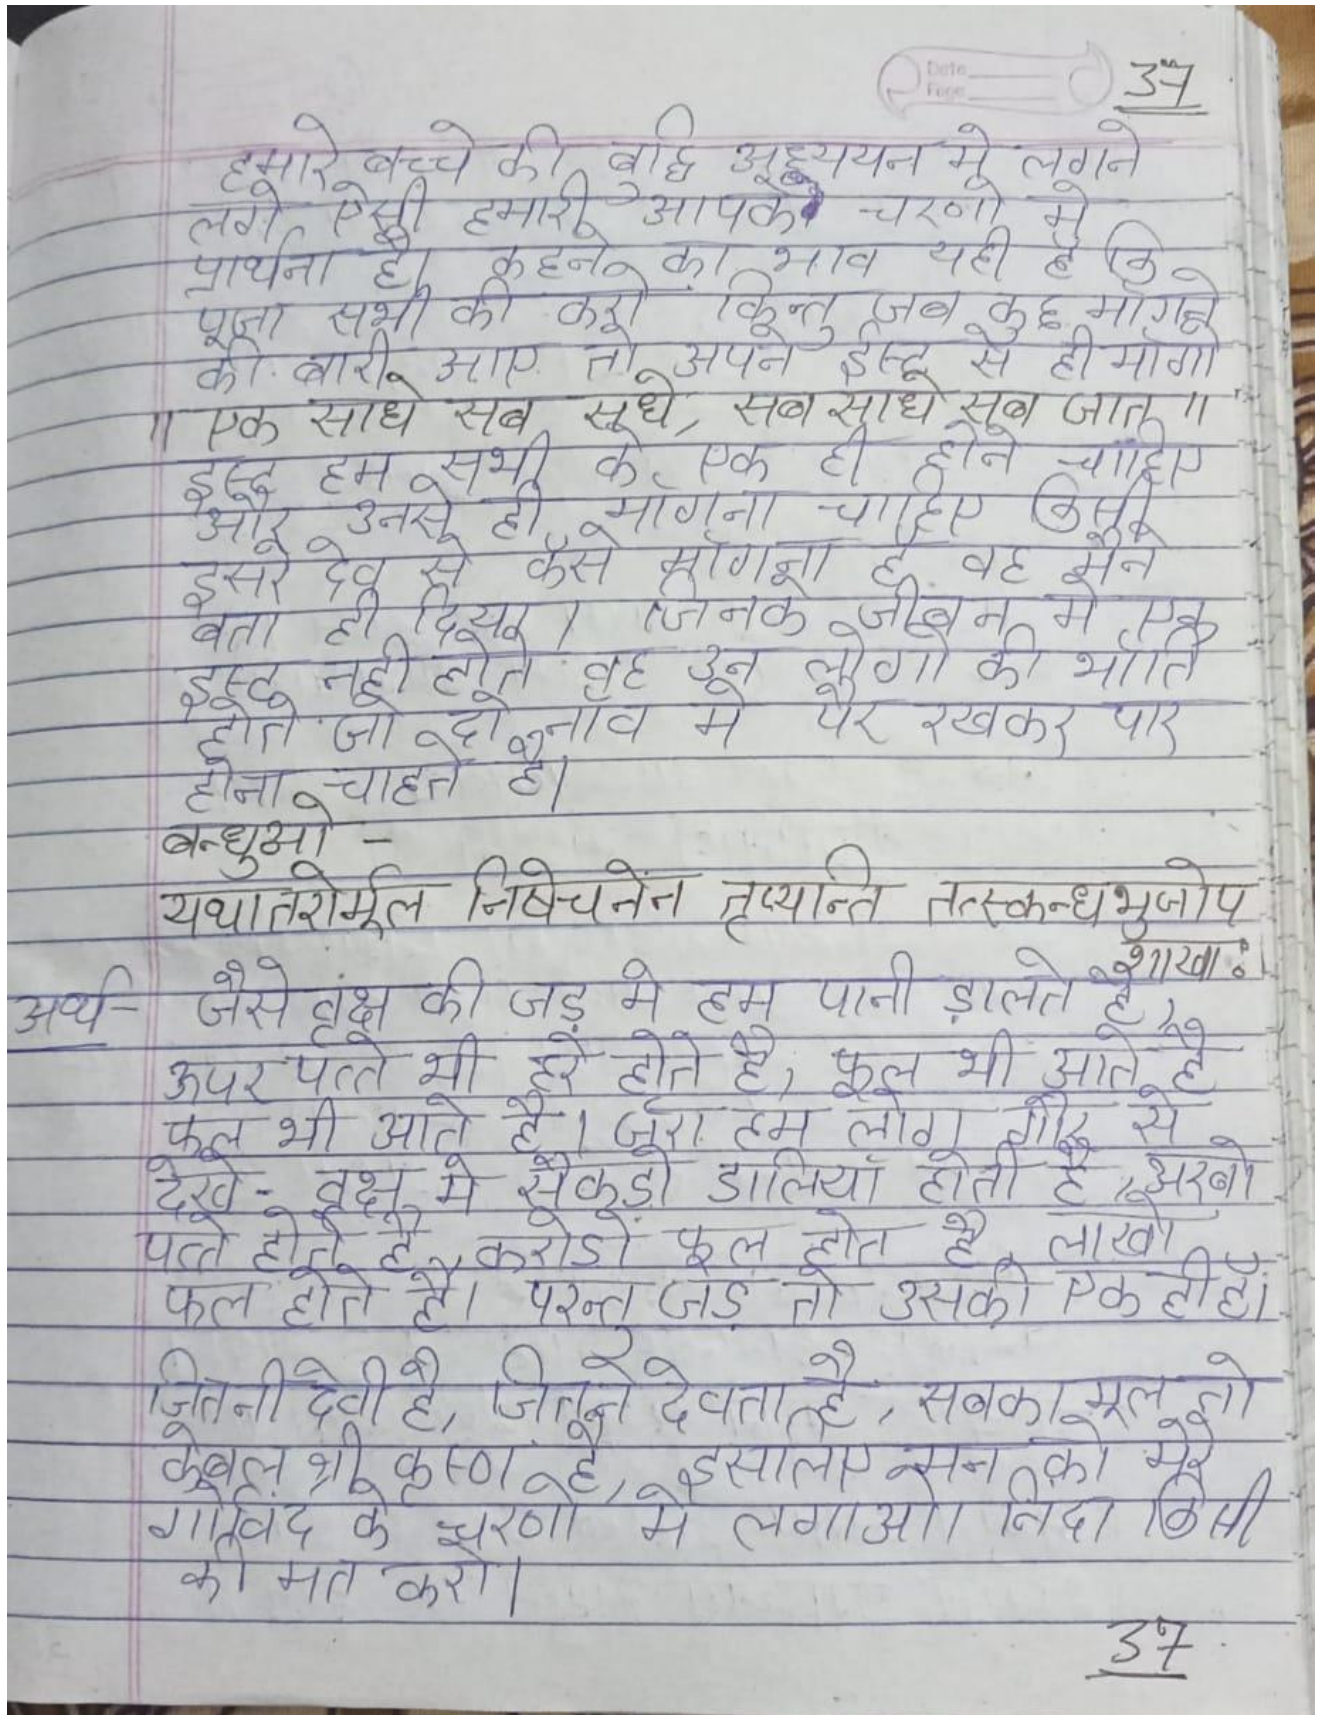 Date
Page
37
हमारे बच्चे की बुद्धि अध्ययन मे लगने
लगे ऐसी हमारी आपके चरणो मे
प्रार्थना है। कहने का भाव यही है कि
पूजा सभी की करो किन्तु जब कुछ माँगने
की बारी आए तो अपने ईष्ट से ही माँगो
॥ एक साधे सब सधे, सब साधे सब जात ॥
इष्ट हम सभी के एक ही होने चाहिए
और उनसे ही माँगना चाहिए किसी
दूसरे देव से कैसे माँगना है वह मैने
बता ही दिया। जिनके जीवन मे एक
इष्ट नही होते वह उन लोगो की भाँति
होते जो दो नाव मे पैर रखकर पार
होना चाहते है।
बन्धुओ -
यथातरोर्मूल निषेचनेन तृप्यन्ति तत्स्कन्धभुजोप
शाखाः।
अर्थ- जैसे वृक्ष की जड़ मे हम पानी ड़ालते है,
ऊपर पत्ते भी हरे होते है, फूल भी आते है
फल भी आते है। जरा हम लोग गौर से
देखे - वृक्ष मे सैकडो डालियाँ होती है, अरबो
पत्ते होते है, करोडो फूल होते है, लाखो
फल होते है। परन्तु जड़ तो उसकी एक ही है।
जितनी देवी है, जितने देवता है, सबका मूल तो
केवल श्री कृष्ण है, इसलिए मन को मेरे
गोविंद के चरणो मे लगाओ। निंदा किसी
की मत करो।
37